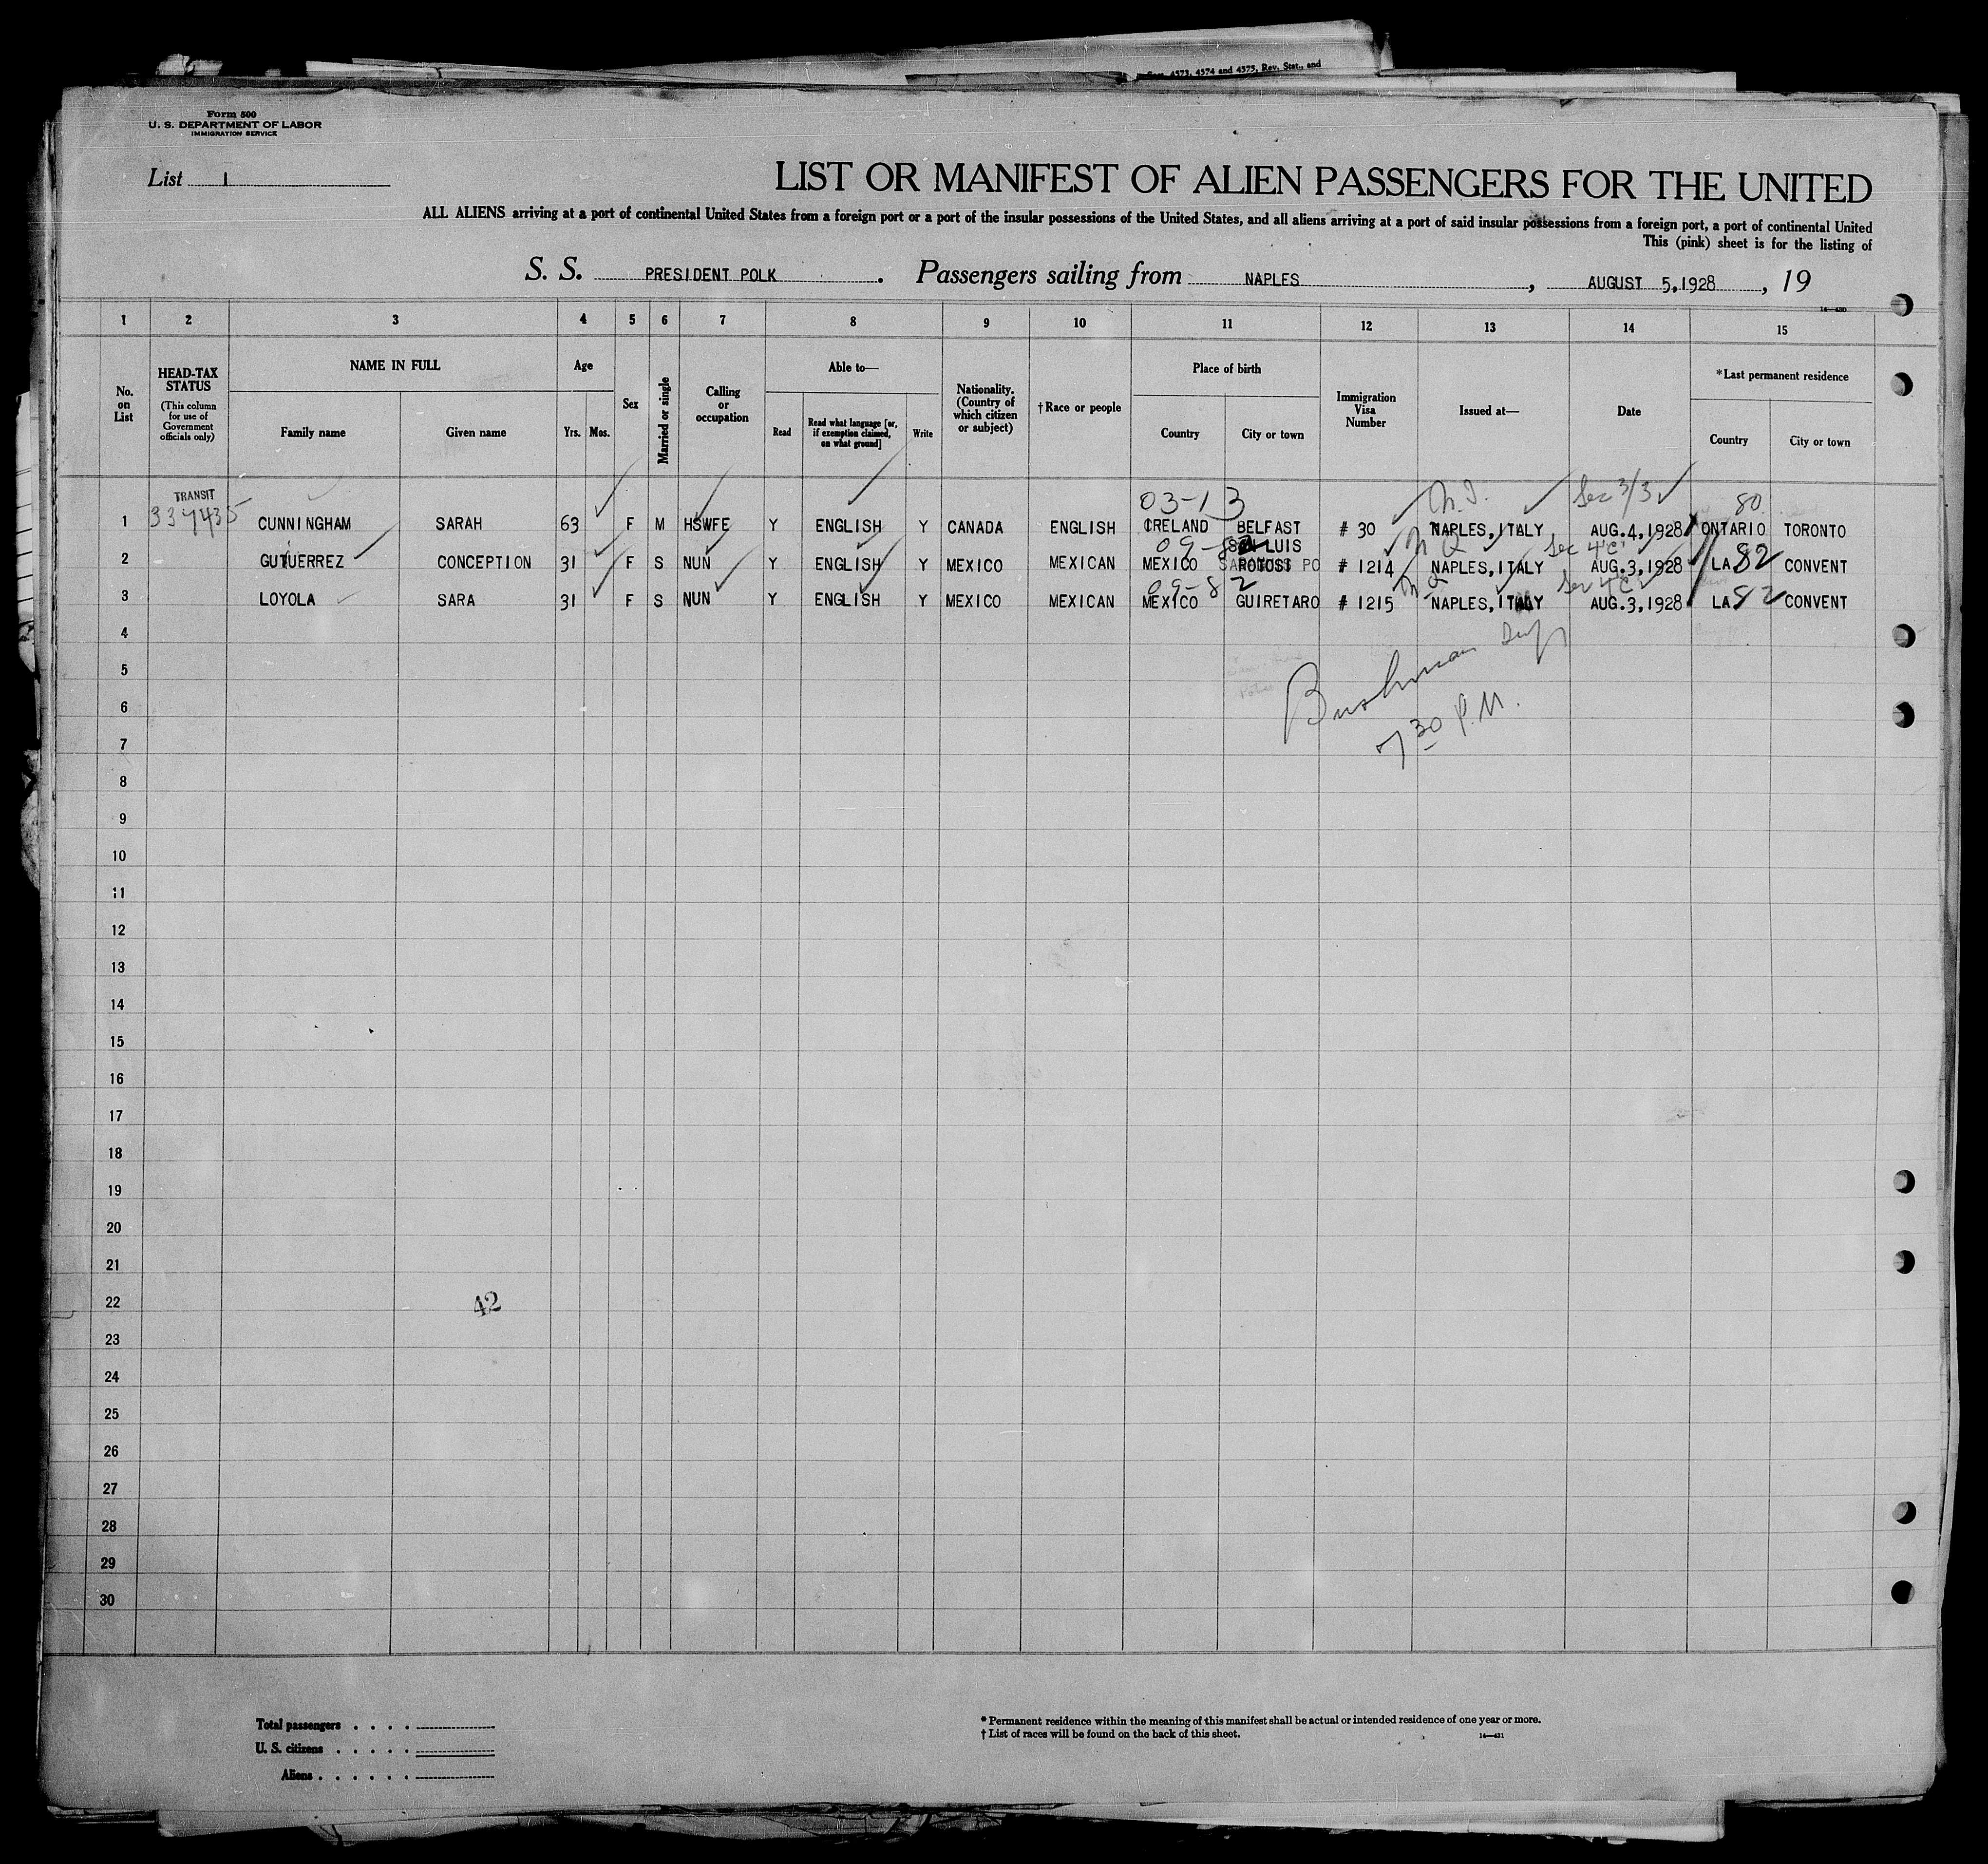 Sec. 4573, 4574 and 4575, Rev. Stat., and
Form 500
U. S. DEPARTMENT OF LABOR
IMMIGRATION SERVICE
List 1
LIST OR MANIFEST OF ALIEN PASSENGERS FOR THE UNITED
ALL ALIENS arriving at a port of continental United States from a foreign port or a port of the insular possessions of the United States, and all aliens arriving at a port of said insular possessions from a foreign port, a port of continental United
This (pink) sheet is for the listing of
S. S. PRESIDENT POLK . Passengers sailing from NAPLES , AUGUST 5,1928 , 19
14—430
1 2 3 4 5 6 7 8 9 10 11 12 13 14 15
No. on List
HEAD-TAX STATUS
(This column for use of Government officials only)
NAME IN FULL
Family name Given name
Age
Yrs. Mos.
Sex
Married or single
Calling or occupation
Able to—
Read
Read what language [or, if exemption claimed, on what ground]
Write
Nationality. (Country of which citizen or subject)
† Race or people
Place of birth
Country City or town
Immigration Visa Number
Issued at—
Date
*Last permanent residence
Country City or town
TRANSIT 03-13 N.I. Sec 3/3 80
1 337435 CUNNINGHAM SARAH 63 F M HSWFE Y ENGLISH Y CANADA ENGLISH IRELAND BELFAST # 30 NAPLES,ITALY AUG.4,1928 ONTARIO TORONTO
09- LUIS N Q Sec 4 'C'
2 GUTUERREZ CONCEPTION 31 F S NUN Y ENGLISH Y MEXICO MEXICAN MEXICO POTOSI # 1214 NAPLES,ITALY AUG.3,1928 LA 82 CONVENT
09-82 N Q Sec 4 'C'
3 LOYOLA SARA 31 F S NUN Y ENGLISH Y MEXICO MEXICAN MEXICO GUIRETARO # 1215 NAPLES,ITALY AUG.3,1928 LA 82 CONVENT
4
5
Bushman Insp
6
7 30 P.M.
7
8
9
10
11
12
13
14
15
16
17
18
19
20
21
22 42
23
24
25
26
27
28
29
30
Total passengers . . . .
U. S. citizens . . . . .
Aliens . . . . . .
* Permanent residence within the meaning of this manifest shall be actual or intended residence of one year or more.
† List of races will be found on the back of this sheet. 14—431